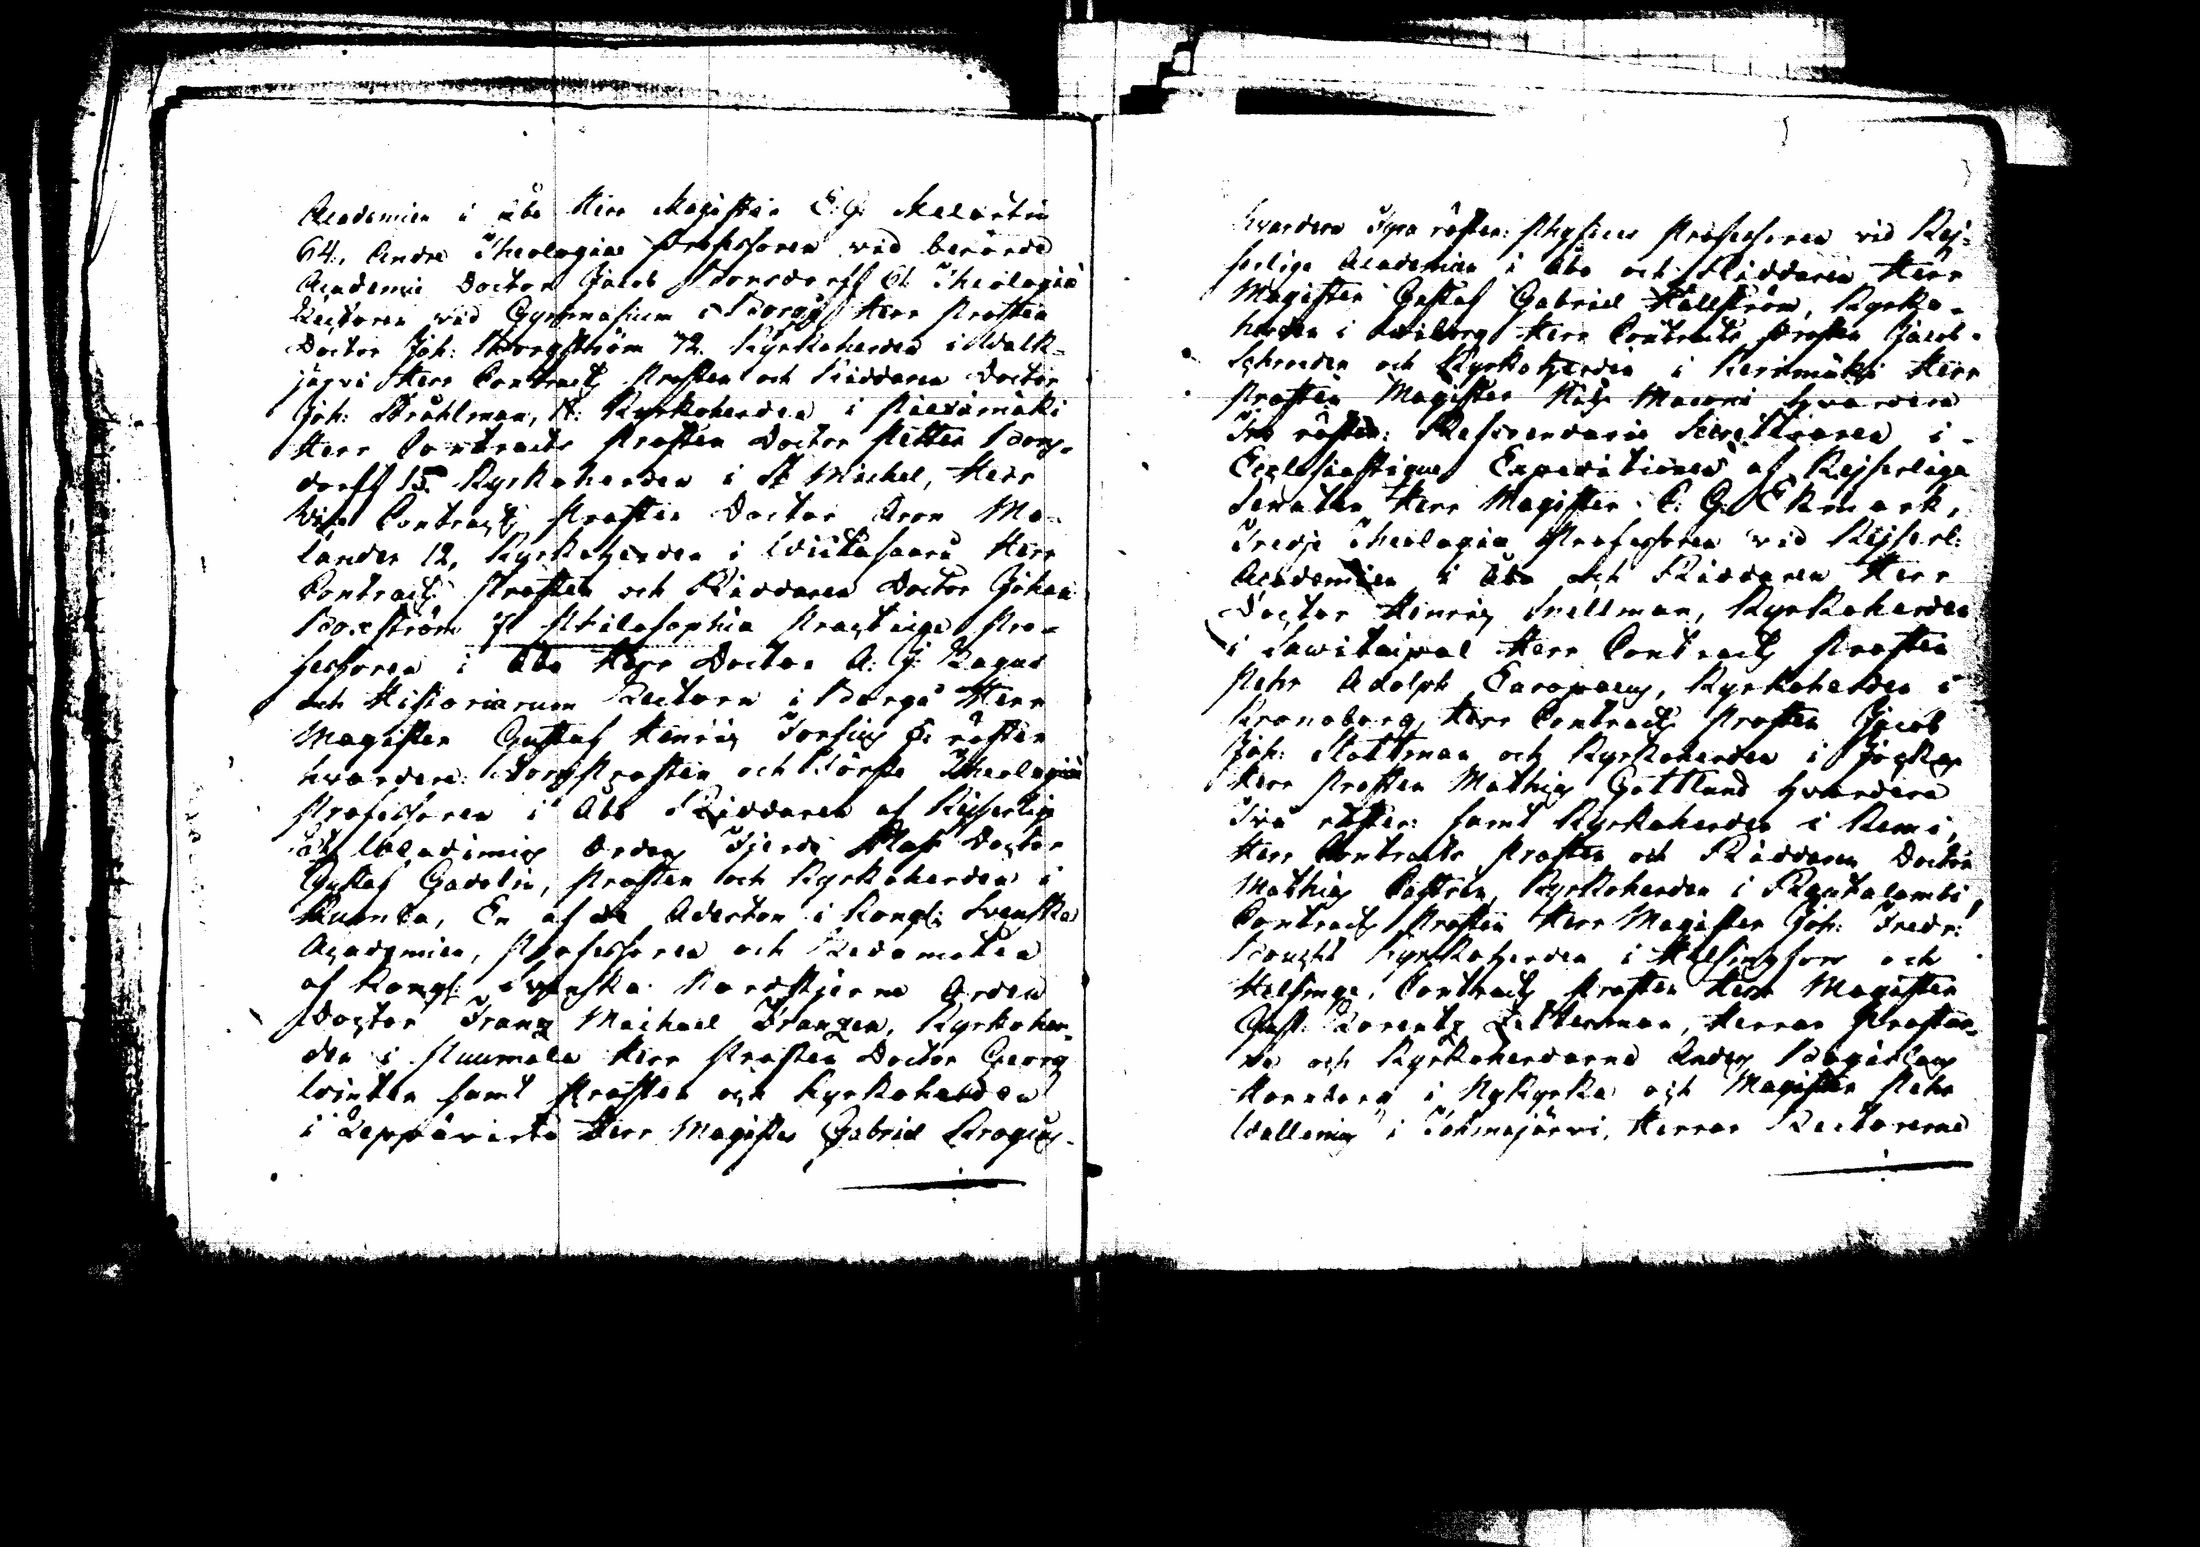 Academien i Åbo Herr Magister E. G. Melartin
64, Andre Theologiae Professoren vid berörde
Academie Doctor Jacob Bonsdorff 61 Theologiae
Lectoren vid Gymnasium i Borgå Herr Prosten
Doctor Joh: Borgström 72. Kyrkoherden i Walk-
järvi Herr Contracts Prosten och Riddaren Doctor
Joh: Stråhlman, Kyrkoherden i Pielämäki
Herr Contracts Prosten Doctor Petter Bons-
dorff 15. Kyrkoherden i St Michel, Herr
Vice Contracts Prosten Doctor Aron Mo-
lander 12, Kyrkoherden i Wiitasaari Herr
Contracts Prosten och Riddaren Doctor Johan
Boxström Philosophiae Practicae Pro-
fessoren i Åbo Herr Doctor A. J. Lagus
och Historiarum Lectorn i Borgå Herr
Magister Gustaf Henric Forsius röster
hvardera: Domprosten och Förste Theologiae
Professoren i Åbo Riddaren af Kejserlige
St Wladimirs Orden Fjerde Klass Doctor
Gustaf Gadolin, Prosten och Kyrkoherden i
Kumla, En af de Aderton i Kongl: Svenska
Academien, Professoren och Ledamoten
af Kongl: Svenska Nordstjerne Orden
Doctor Franz Michael Franzen, Kyrkoher-
den i Puumala Herr Prosten Doctor Georg
Winter samt Prosten och Kyrkoherden
i Leppävirta Herr Magister Gabriel Krogius
hvardera Fyra röster: Physices Professoren vid Kej-
serlige Academien i Åbo och Riddaren Herr
Magister Gustaf Gabriel Hällström, Kyrko-
herden i Wiborg Herr Contracts Prosten Jacob
Schroeder och Kyrkoherden i Kerimäki Herr
Prosten Magister Maconi hvardera
Tre röster: Referendarie Secretteraren i
Ecclesiastique Expeditionen af Kejserliga
Senaten Herr Magister C. G. Ekmark,
Tredje Theologiae Professoren vid Kejserl:
Academien i Åbo och Riddaren Herr
Doctor Henric Snellman, Kyrkoherden
i Sawitaipal Herr Contracts Prosten
Pehr Adolph Europaeus, Kyrkoherden i
Kronoborg Herr Contracts Prosten Jacob
Joh: Molltman och Kyrkoherden i Jockas
Herr Prosten Mathias Gottlund hvardera
Två röster: samt Kyrkoherden i Kemi,
Herr Contracts Prosten och Riddaren Doctor
Mathias Castrén, Kyrkoherden i Rautalambi,
Contracts Prosten Herr Magister Joh: Fredr:
Bougt Kyrkoherden i Helsingfors och
Helsinge, Contracts Prosten Herr Magister
Gust: Lorentz Zitterman, Herrar Prostar-
ne och Kyrkoherdarne Anders Bogislaus
Hornborg i Nykyrka och Magister Pehr
Wallenius i Tohmajärvi, Herrar Lectorerne